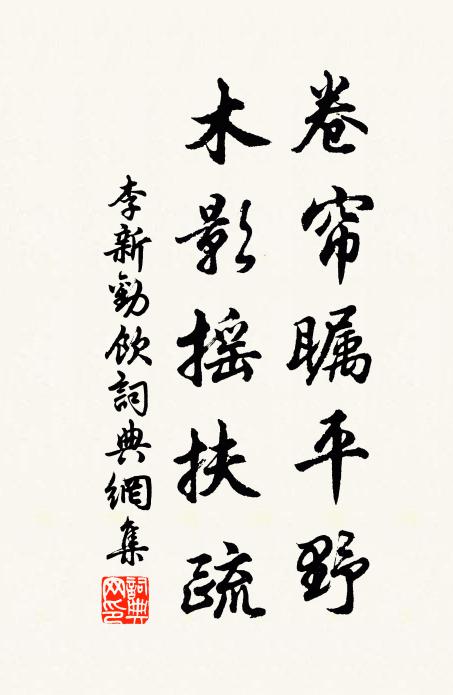 卷帘瞩平野
木影摇扶疏
李新勸飲詞典網集
詞典
网印